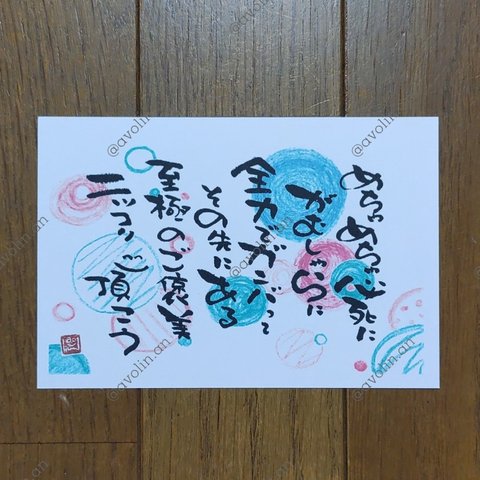 めちゃめちゃ必死に
がむしゃらに
全力でガンバって
その先にある
至極のご褒美
ニッコリ心頂こう
@avolin.an